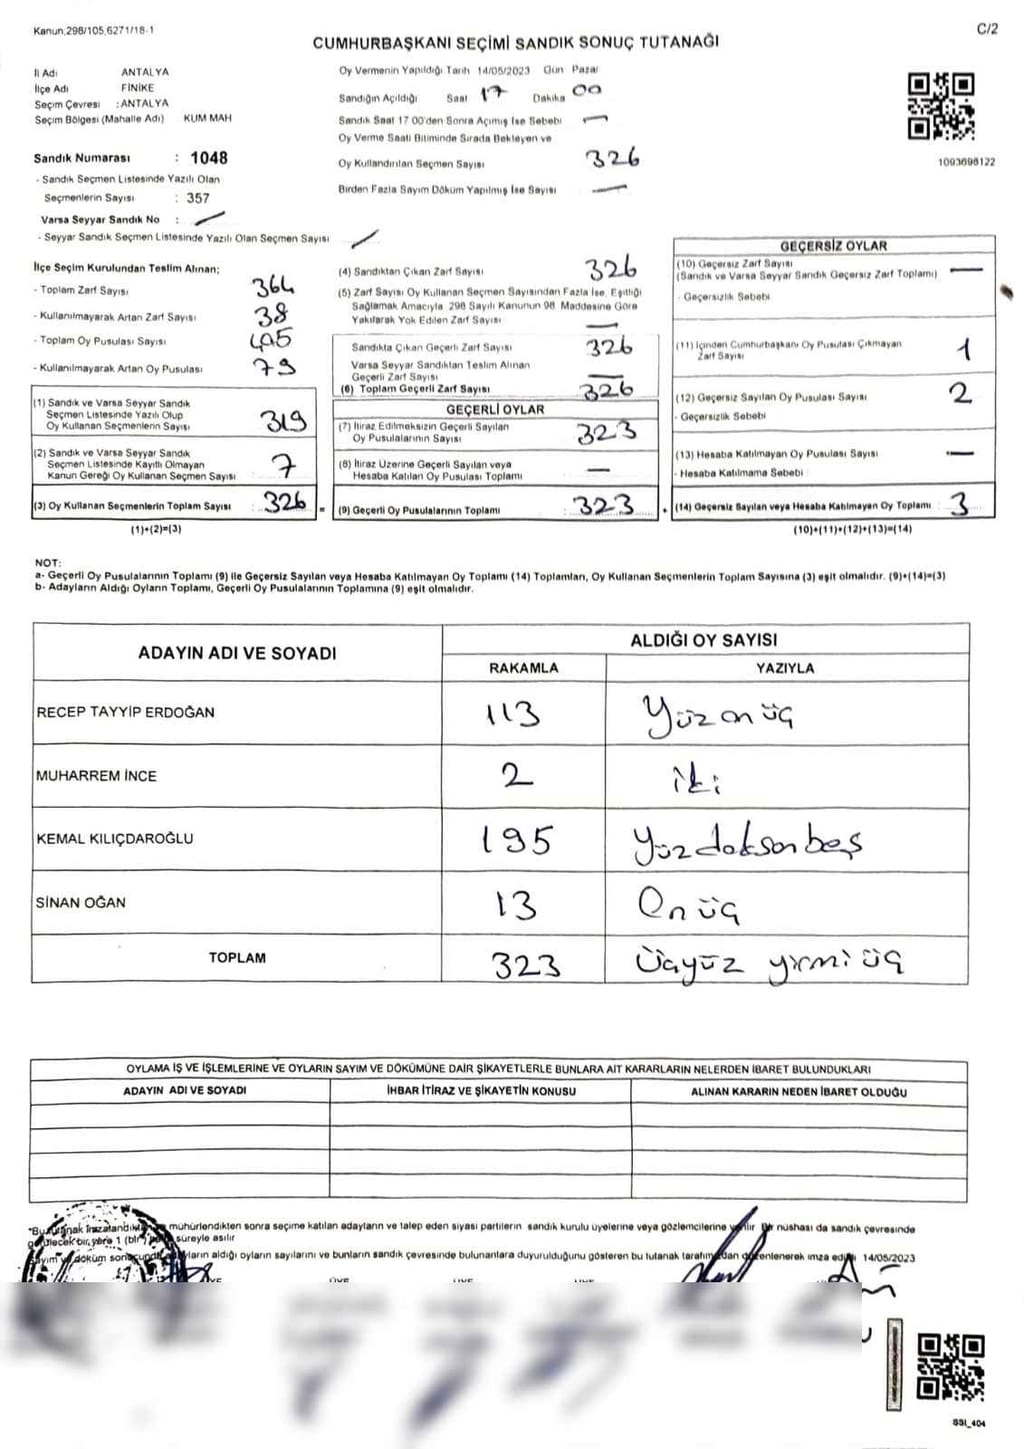 Kanun;298/105,6271/18-1
C/2
CUMHURBAŞKANI SEÇİMİ SANDIK SONUÇ TUTANAĞI
İl Adı ANTALYA
İlçe Adı FİNİKE
Seçim Çevresi : ANTALYA
Seçim Bölgesi (Mahalle Adı) KUM MAH
Sandık Numarası : 1048
- Sandık Seçmen Listesinde Yazılı Olan
Seçmenlerin Sayısı : 357
Varsa Seyyar Sandık No : —
- Seyyar Sandık Seçmen Listesinde Yazılı Olan Seçmen Sayısı —
Oy Vermenin Yapıldığı Tarih 14/05/2023 Gün Pazar
Sandığın Açıldığı Saat 17 Dakika 00
Sandık Saat 17 00'den Sonra Açılmış İse Sebebi —
Oy Verme Saati Bitiminde Sırada Bekleyen ve
Oy Kullandırılan Seçmen Sayısı 326
Birden Fazla Sayım Döküm Yapılmış İse Sayısı —
1093698122
İlçe Seçim Kurulundan Teslim Alınan;
- Toplam Zarf Sayısı 364
- Kullanılmayarak Artan Zarf Sayısı 38
- Toplam Oy Pusulası Sayısı 405
- Kullanılmayarak Artan Oy Pusulası 79
(1) Sandık ve Varsa Seyyar Sandık
Seçmen Listesinde Yazılı Olup
Oy Kullanan Seçmenlerin Sayısı 319
(2) Sandık ve Varsa Seyyar Sandık
Seçmen Listesinde Kayıtlı Olmayan
Kanun Gereği Oy Kullanan Seçmen Sayısı 7
(3) Oy Kullanan Seçmenlerin Toplam Sayısı : 326 =
(1)+(2)=(3)
(4) Sandıktan Çıkan Zarf Sayısı 326
(5) Zarf Sayısı Oy Kullanan Seçmen Sayısından Fazla İse, Eşitliği
Sağlamak Amacıyla 298 Sayılı Kanunun 98 Maddesine Göre
Yakılarak Yok Edilen Zarf Sayısı —
Sandıkta Çıkan Geçerli Zarf Sayısı 326
Varsa Seyyar Sandıktan Teslim Alınan
Geçerli Zarf Sayısı —
(6) Toplam Geçerli Zarf Sayısı 326
GEÇERLİ OYLAR
(7) İtiraz Edilmeksizin Geçerli Sayılan
Oy Pusulalarının Sayısı 323
(8) İtiraz Üzerine Geçerli Sayılan veya
Hesaba Katılan Oy Pusulası Toplamı —
(9) Geçerli Oy Pusulalarının Toplamı : 323 +
GEÇERSİZ OYLAR
(10) Geçersiz Zarf Sayısı
(Sandık ve Varsa Seyyar Sandık Geçersiz Zarf Toplamı) —
- Geçersizlik Sebebi
(11) İçinden Cumhurbaşkanı Oy Pusulası Çıkmayan
Zarf Sayısı 1
(12) Geçersiz Sayılan Oy Pusulası Sayısı 2
- Geçersizlik Sebebi
(13) Hesaba Katılmayan Oy Pusulası Sayısı —
- Hesaba Katılmama Sebebi
(14) Geçersiz Sayılan veya Hesaba Katılmayan Oy Toplamı : 3
(10)+(11)+(12)+(13)=(14)
NOT:
a- Geçerli Oy Pusulalarının Toplamı (9) ile Geçersiz Sayılan veya Hesaba Katılmayan Oy Toplamı (14) Toplamları, Oy Kullanan Seçmenlerin Toplam Sayısına (3) eşit olmalıdır. (9)+(14)=(3)
b- Adayların Aldığı Oyların Toplamı, Geçerli Oy Pusulalarının Toplamına (9) eşit olmalıdır.
ADAYIN ADI VE SOYADI ALDIĞI OY SAYISI
RAKAMLA YAZIYLA
RECEP TAYYİP ERDOĞAN 113 Yüz on üç
MUHARREM İNCE 2 iki
KEMAL KILIÇDAROĞLU 195 Yüzdoksanbeş
SİNAN OĞAN 13 On üç
TOPLAM 323 Üçyüz yirmi üç
OYLAMA İŞ VE İŞLEMLERİNE VE OYLARIN SAYIM VE DÖKÜMÜNE DAİR ŞİKAYETLERLE BUNLARA AİT KARARLARIN NELERDEN İBARET BULUNDUKLARI
ADAYIN ADI VE SOYADI İHBAR İTİRAZ VE ŞİKAYETİN KONUSU ALINAN KARARIN NEDEN İBARET OLDUĞU
mühürlendikten sonra seçime katılan adayların ve talep eden siyasi partilerin sandık kurulu üyelerine veya gözlemcilerine verilir. Bir nüshası da sandık çevresinde
süreyle asılır
oyların aldığı oyların sayılarını ve bunların sandık çevresinde bulunanlara duyurulduğunu gösteren bu tutanak tarafımızdan düzenlenerek imza edildi 14/05/2023
SSI_404